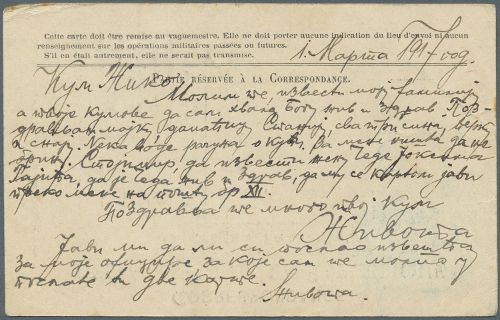 Cette carte doit être remise au vaguemestre. Elle ne doit porter aucune indication du lieu d'envoi ni aucun
renseignement sur les opérations militaires passées ou futures.
S'il en était autrement, elle ne serait pas transmise.
1. Марта 1917 год.
PARTIE RÉSERVÉE À LA CORRESPONDANCE.
Кум Нико
Молим те, извести моју фамилију
а твоје кумове да сам хвала Богу жив и здрав. Поз-
дрављам мајку,
и снају. Нека води рачуна о кући.
да извести жену
да је Чеда жив и здрав, да му се картом јави
преко мене на пошту бр XII.
Поздравља те много твој кум
Живота
Јави ми да ли си послао извешћа
за моје официре за које сам те молио у
послате ти две карте.
Живота.